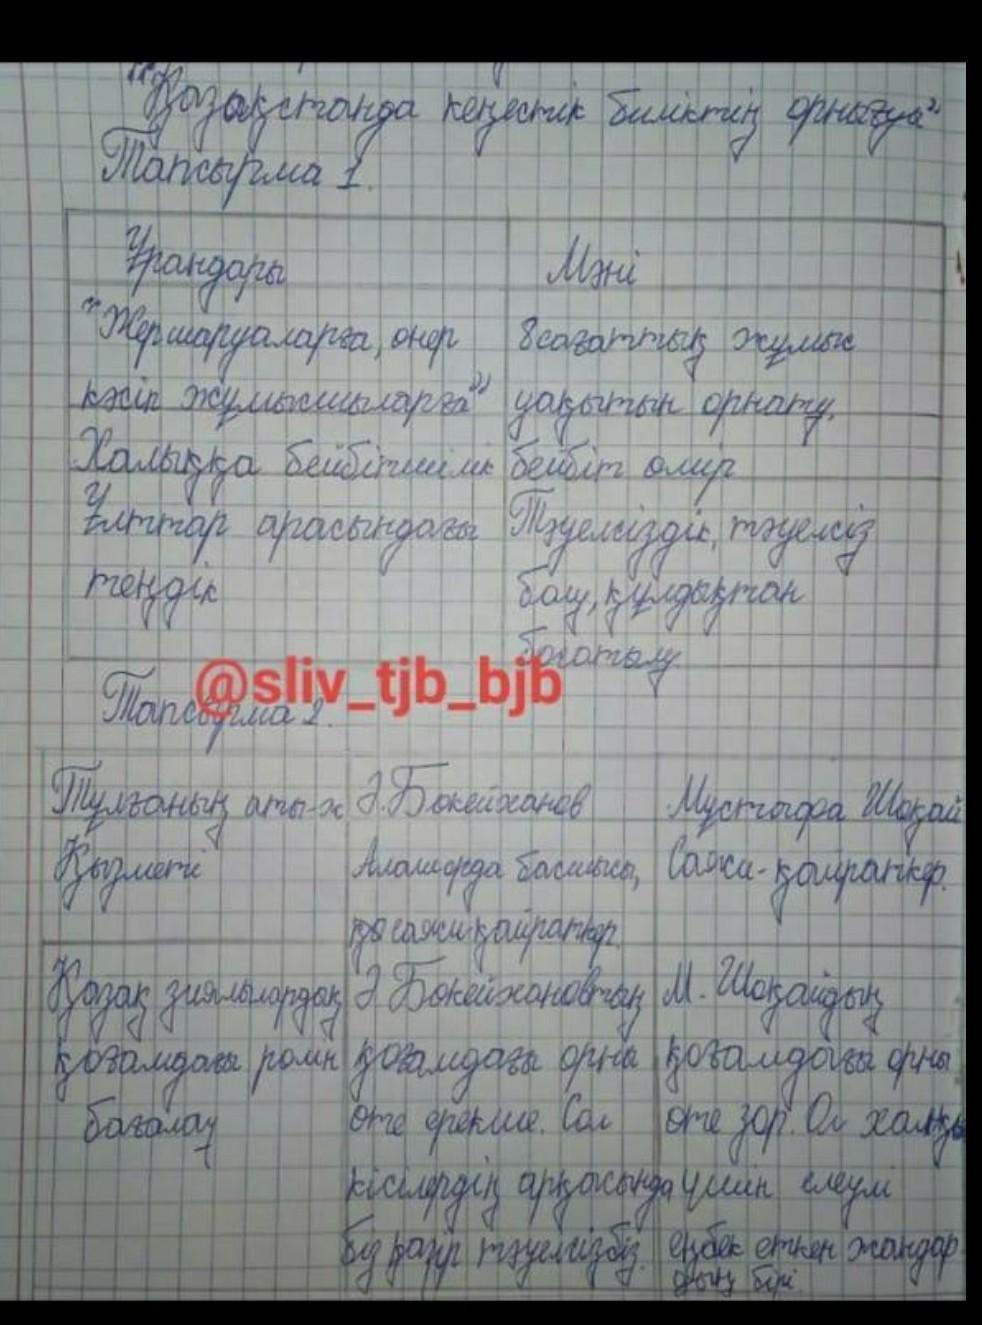 "Қазақстанда кеңестік биліктің орнағуа"
Тапсырма 1.
Ұрандары
Мәні
"Жер шаруаларға, өнер
8 сағаттық жұмыс
кәсіп жұмысшыларға"
уақытын орнату.
Халыққа бейбітшілік
бейбіт өмір
Ұлттар арасындағы
Тәуелсіздік, тәуелсіз
теңдік
болу, құлдықтан
босатылу
@sliv_tjb_bjb
Тапсырма 2.
Тұлғаның аты-ж
Ә.Бөкейханов
Мұстафа Шоқай
Қызметі
Алашорда басшысы,
Саяси-қайраткер.
қоғ саяси қайраткер.
Қазақ зиялылардың
Ә.Бөкейхановтың
М. Шоқайдың
қоғамдағы ролін
қоғамдағы орны
қоғамдағы орны
бағалау
өте ерекше. Сол
өте зор. Ол халқы
кісілердің арқасында
үшін елеулі
біз қазір тәуелсізбіз.
еңбек еткен жандар
дың бірі.